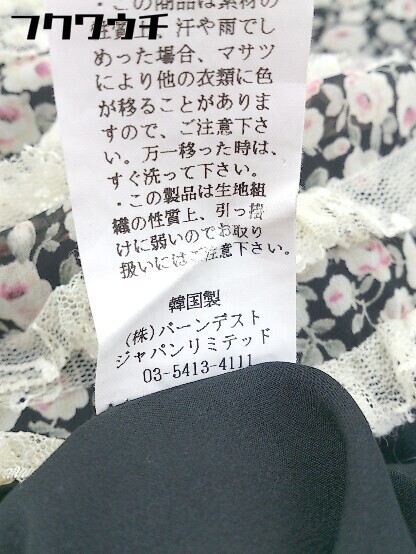 フクウウチ
・この商品は素材の
性質上、汗や雨でし
めった場合、マサツ
により他の衣類に色
が移ることがありま
すので、ご注意下さ
い。万一移った時は、
すぐ洗って下さい。
・この製品は生地組
織の性質上、引っ掛
けに弱いのでお取り
扱いにはご注意下さい。
韓国製
(株)バーンデスト
ジャパンリミテッド
03-5413-4111